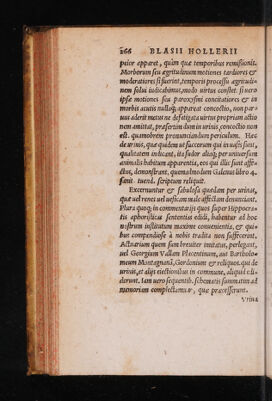 266 BLASII HOLLERII
peior apparet, quàm quæ temporibus remissionis.
Morborum seu ægritudinum motiones tardiores &
moderatiores si fuerint, temporis processu ægritudi-
nem solui iudicabimus, modo uirtus constet. si uero
ipsæ motiones seu paroxysmi concitatiores & in
morbis acutis nulloq; apparet concoctio, non par
uus aderit metus ne defatigata uirtus propriam actio
nem amittat, præsertim dum in urinis, concoctio non
est. quamobrem pronunciandum periculum. Hæc
de urinis, quæ quidem ut succorum qui in uasis sunt,
qualitatem indicant, ita sudor aliaq; per uniuersum
animalis habitum apparentia, eos qui illic sunt affe-
ctus, demonstrant, quemalmodum Galenus libro 4.
sanit. tuend. scriptum reliquit.
Excernuntur & sabulosa quædam per urinas,
quæ uel renes uel uesicam male affectam denunciant.
Plura quoq; in commentarijs quos super Hippocra-
tis aphoristicas sententias edidi, habentur ad hoc
nostrum institutum maxime conuenientia, & qui-
bus compendiose à nobis tradita non sufficerent,
Actuarium quem sum breuiter imitatus, perlegant,
uel Georgium Vallam Placentinum, aut Bartholo-
meum Montagnanā, Gordonium & reliquos, qui de
urinis, et alijs eiectionibus in commune, aliquid edi-
derunt. iam uero sequentib. schematis summatim ad
memoriam complectamur, quæ præcesserunt.
Vrina